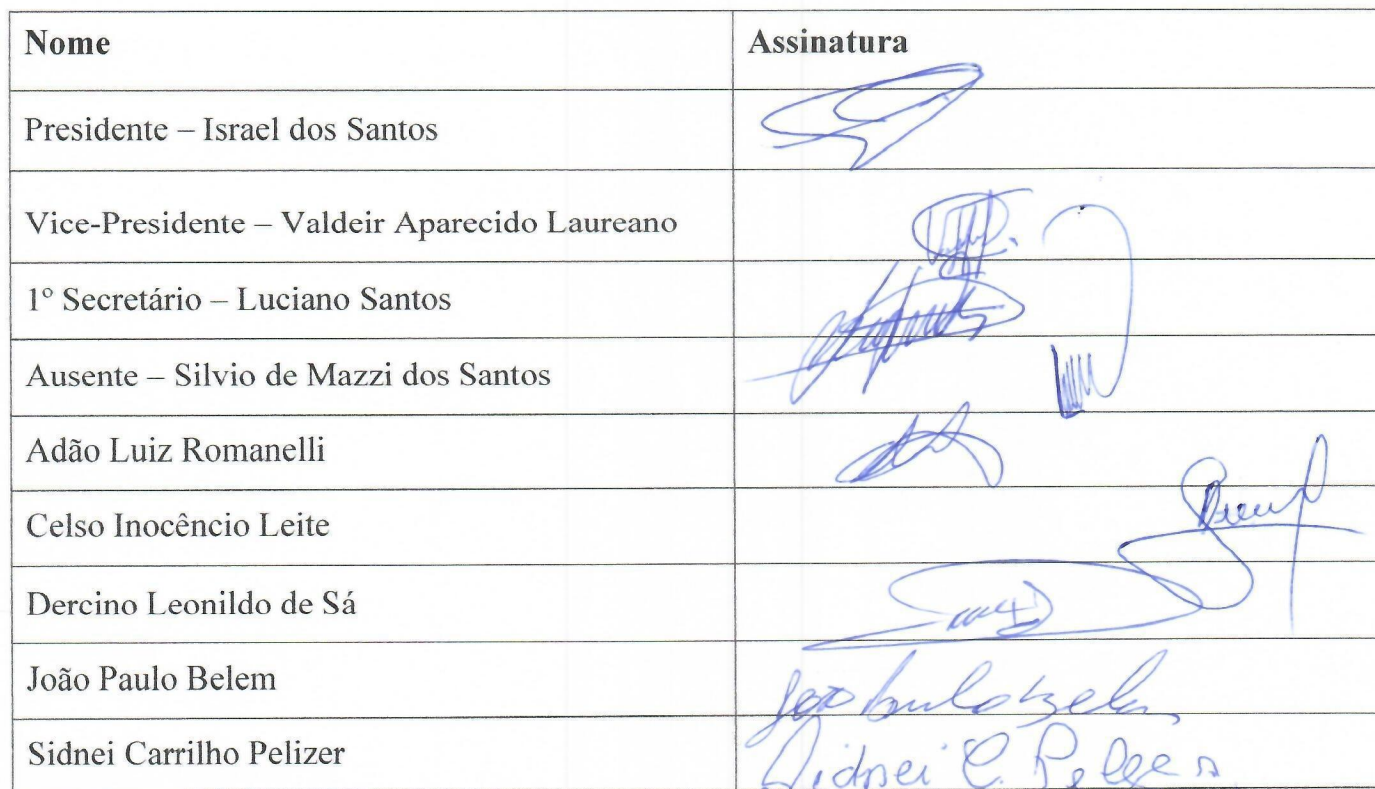 Nome Assinatura
Presidente – Israel dos Santos
Vice-Presidente – Valdeir Aparecido Laureano
1º Secretário – Luciano Santos
Ausente – Silvio de Mazzi dos Santos
Adão Luiz Romanelli
Celso Inocêncio Leite
Dercino Leonildo de Sá
João Paulo Belem
Sidnei Carrilho Pelizer Sidnei C.